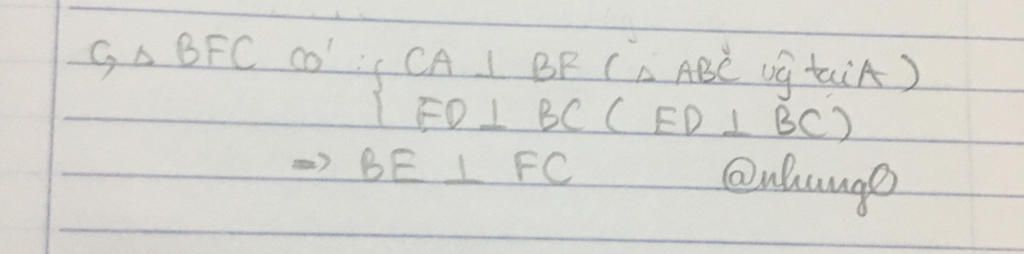 c, △ BFC có : { CA ⊥ BF ( △ ABC vg̃ tại A )
ED ⊥ BC ( ED ⊥ BC )
=> BE ⊥ FC @nhung0